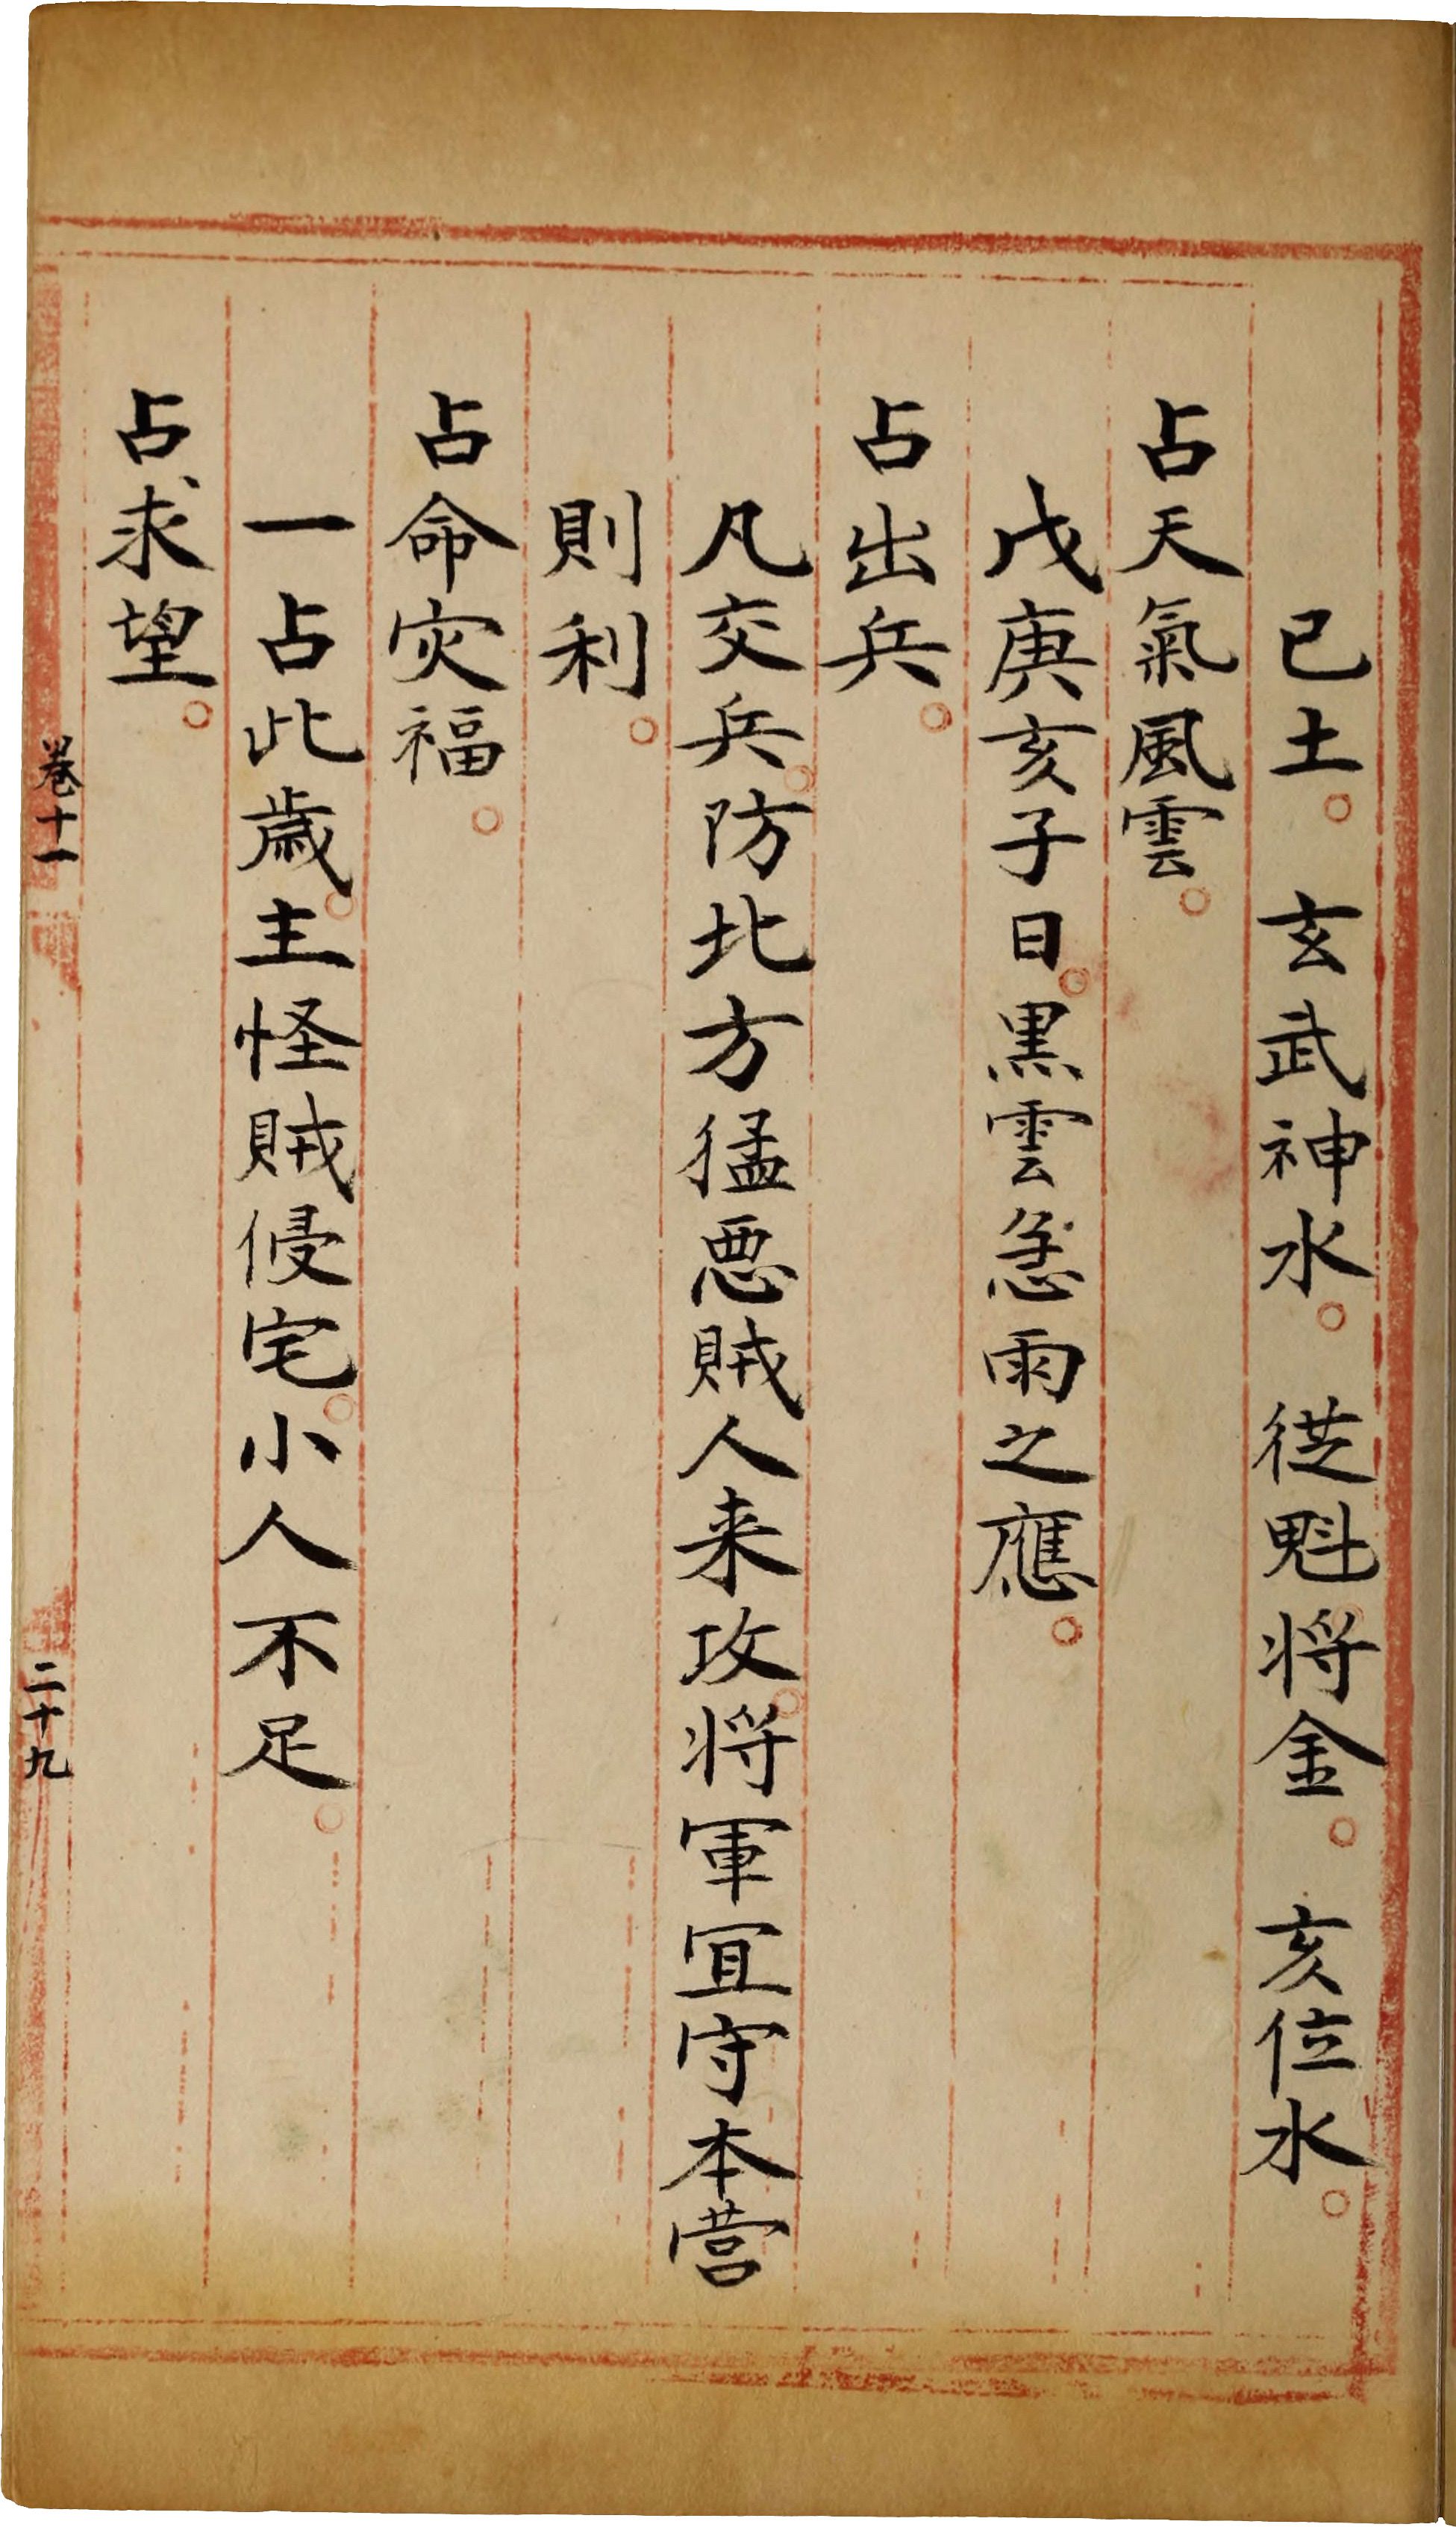 己土。玄武神水。從魁将金。亥位水。
占天氣風雲。
戊庚亥子日。黒雲急雨之應。
占出兵。
凡交兵。防北方猛悪賊人来攻。将軍宜守本营
則利。
占命灾福。
一占此歳。主怪賊侵宅。小人不足。
占求望。
卷十一
二十九